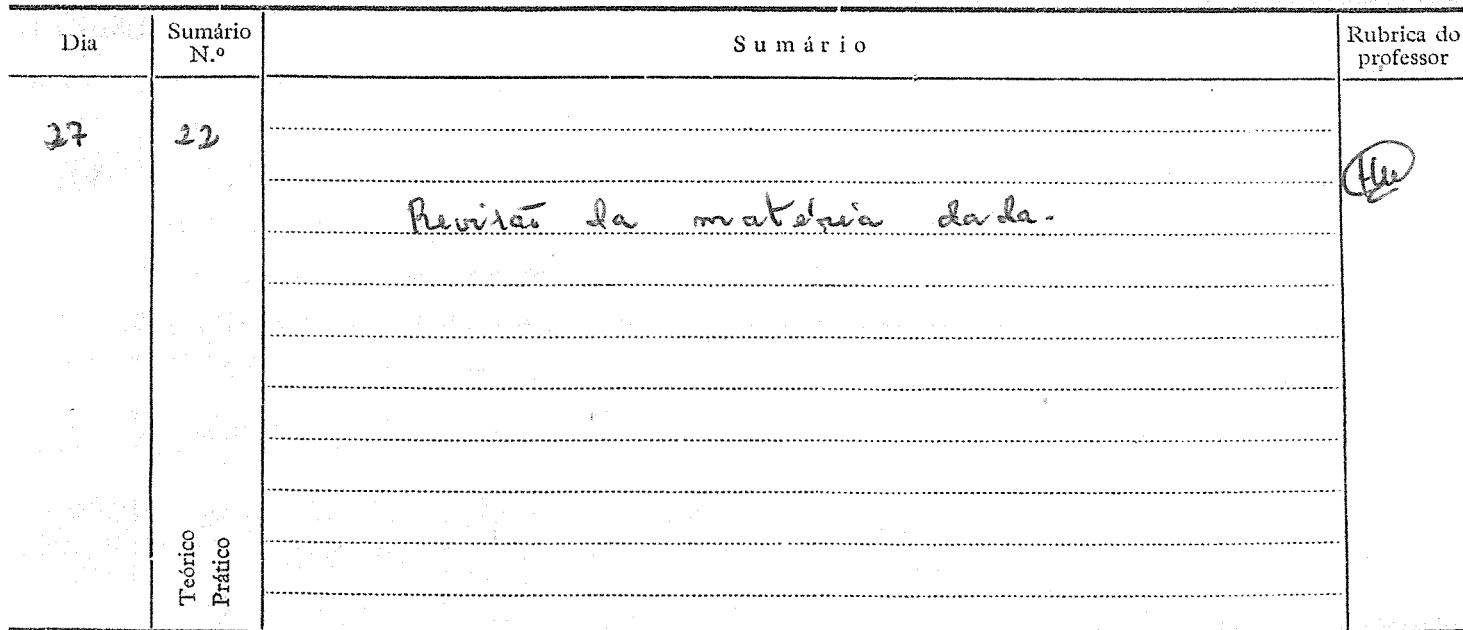 Dia
Sumário N.º
Sumário
Rubrica do professor
27
22
Revisão da matéria dada.
Teórico
Prático